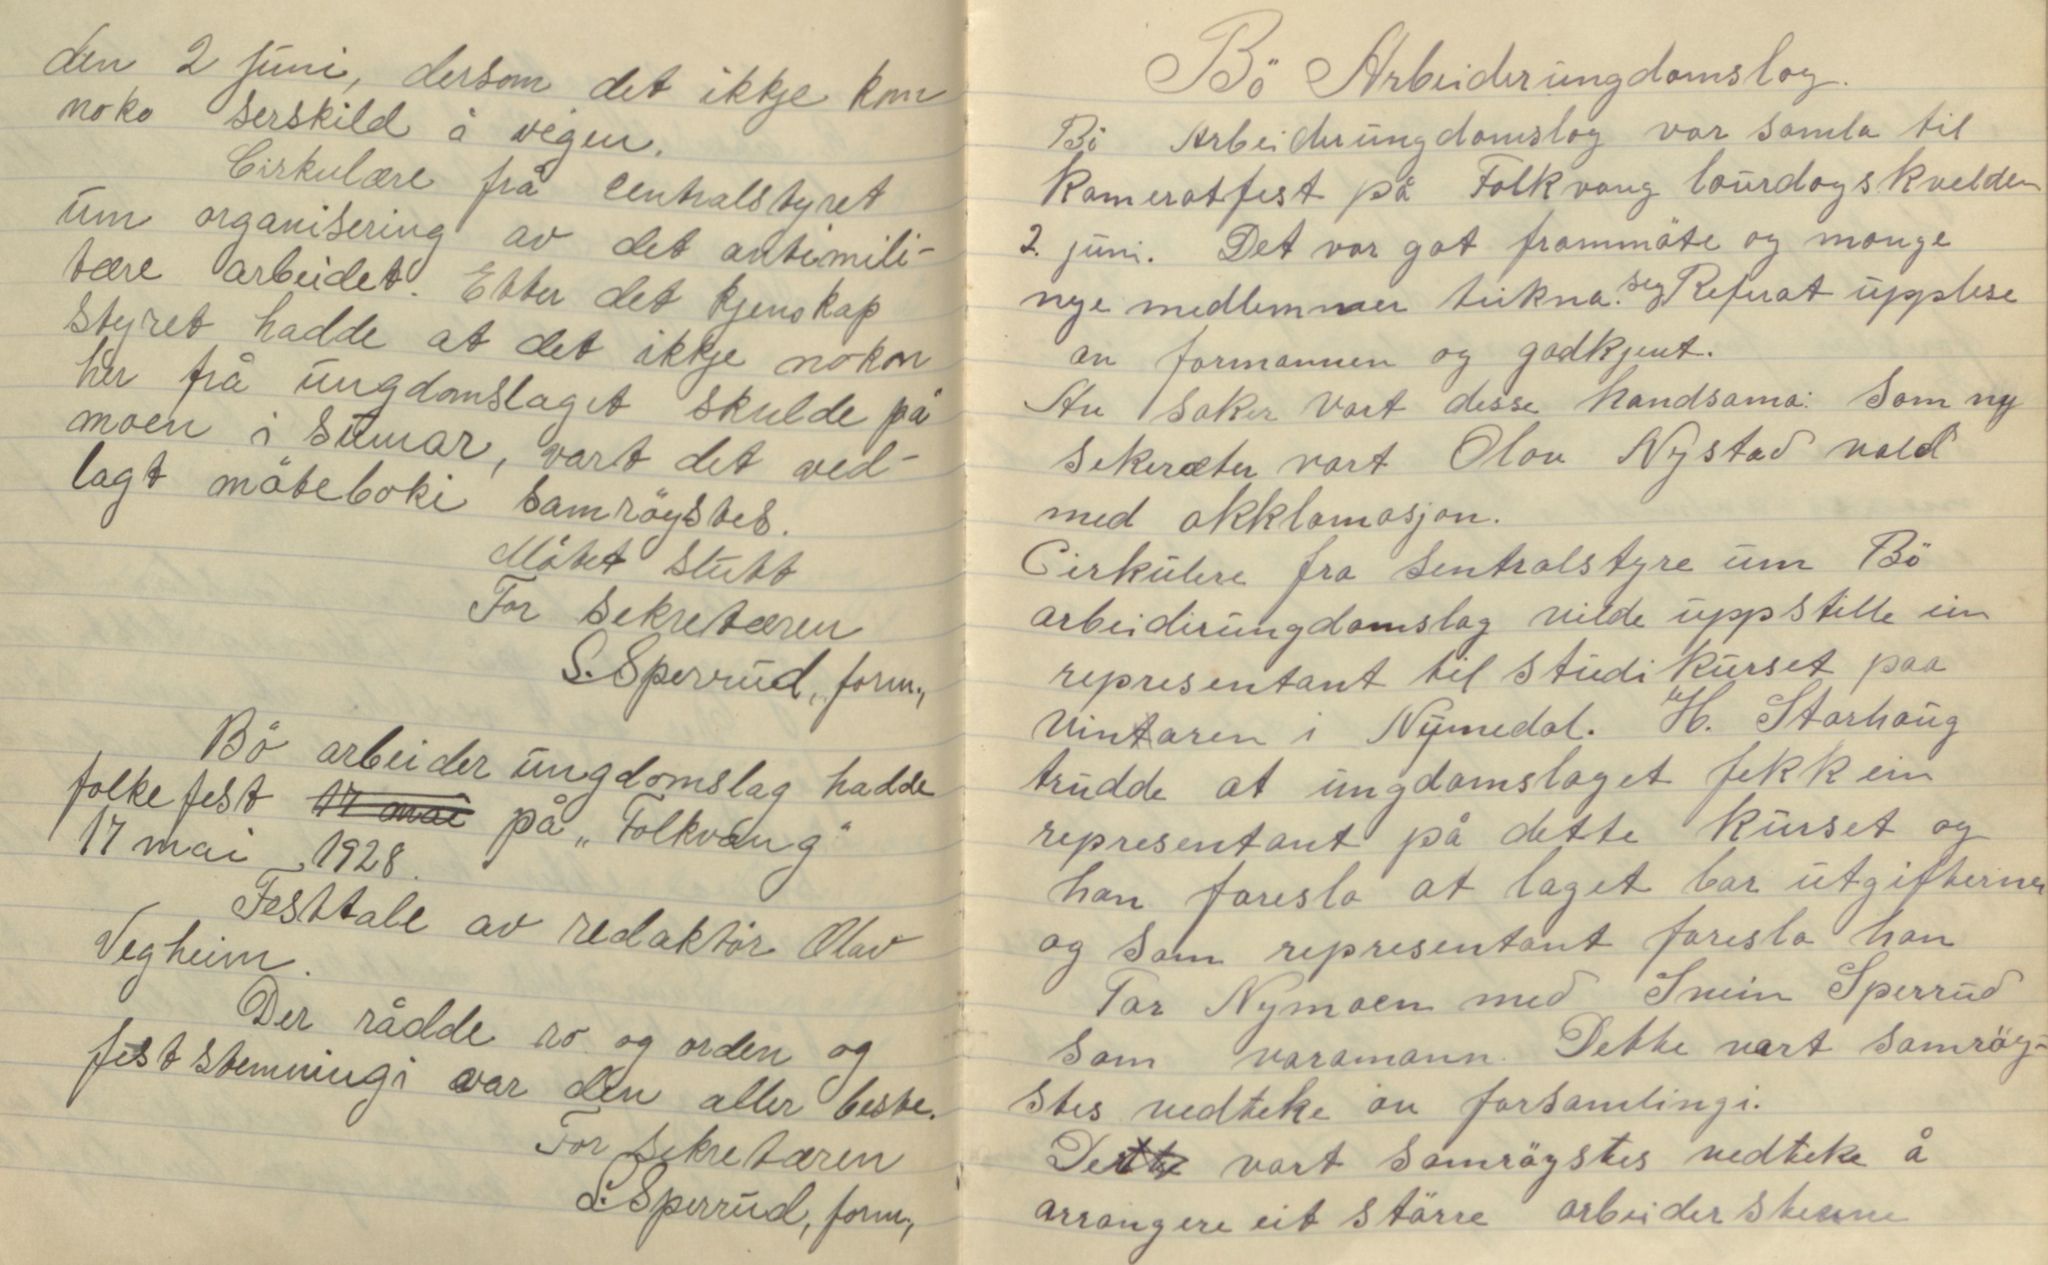 den 2 juni, dersom det ikkje kom
noko serskild i vegen.
Cirkulære frå centralstyret
um organisering av det antimili-
tære arbeidet. Etter det kjenskap
styret hadde at det ikkje nokon
her frå ungdomslaget skulde på
moen i sumar, vart det ved-
lagt möteboki samröystes.
Mötet slutt
For sekretæren
S. Sperrud, form.,
Bö arbeider ungdomslag hadde
folkefest 17 mai på „Folkvang"
17 mai 1928.
Festtale av redaktör Olav
Vegheim.
Der rådde ro og orden og
feststemningi var den aller beste.
For sekretæren
S. Sperrud, form.,
Bö Arbeiderungdomslag.
Bö Arbeiderungdomslag var samla til
Kameratfest på Folkvang laurdagskvelden
2. juni. Det var got frammöte og mange
nye medlemmer teikna seg. Referat upplese
av formannen og godkjent.
Av saker vart desse handsama: Som ny
sekeræter vart Olav Nystad vald
med akklamasjon.
Cirkulere fra sentralstyre um Bö
arbeiderungdomslag vilde uppstille ein
representant til studikurset paa
Vintaren i Numedal. H. Starhaug
trudde at ungdomslaget fekk ein
representant på dette kurset og
han foreslo at laget bar utgifterne
og som representant foreslo han
Tor Nymoen med Svein Sperrud
som varamann. Dette vart samröy-
stes vedteke av forsamlingi.
Det vart samröystes vedteke å
arrangere eit större arbeiderstevne